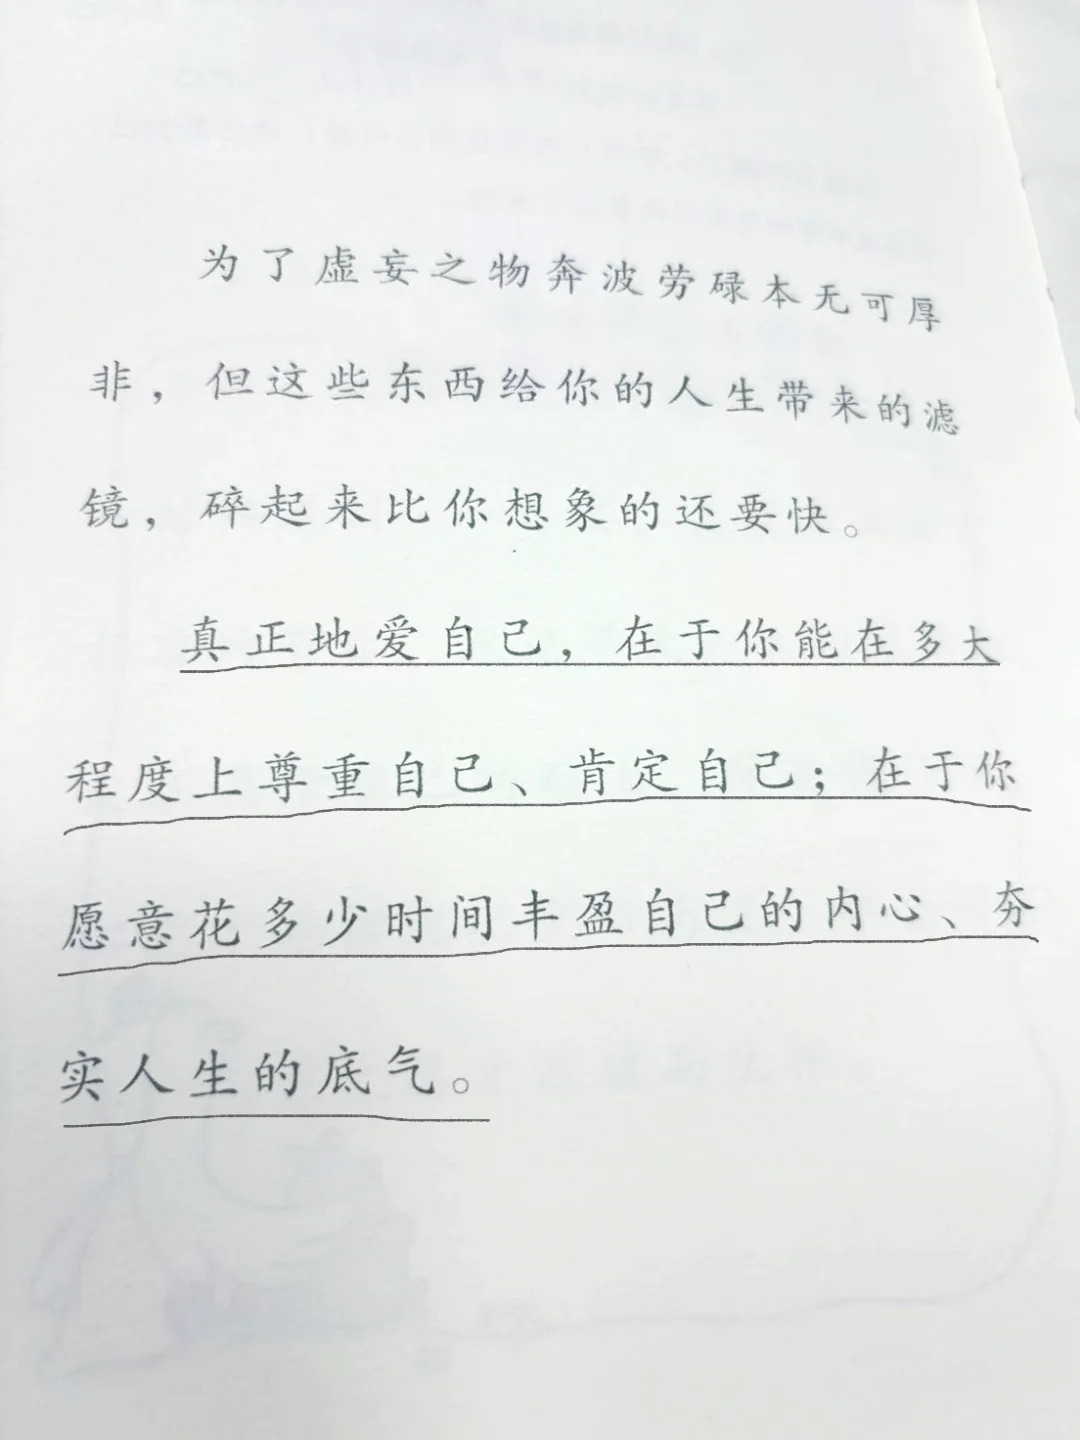 为了虚妄之物奔波劳碌本无可厚
非，但这些东西给你的人生带来的滤
镜，碎起来比你想象的还要快。
真正地爱自己，在于你能在多大
程度上尊重自己、肯定自己；在于你
愿意花多少时间丰盈自己的内心、夯
实人生的底气。